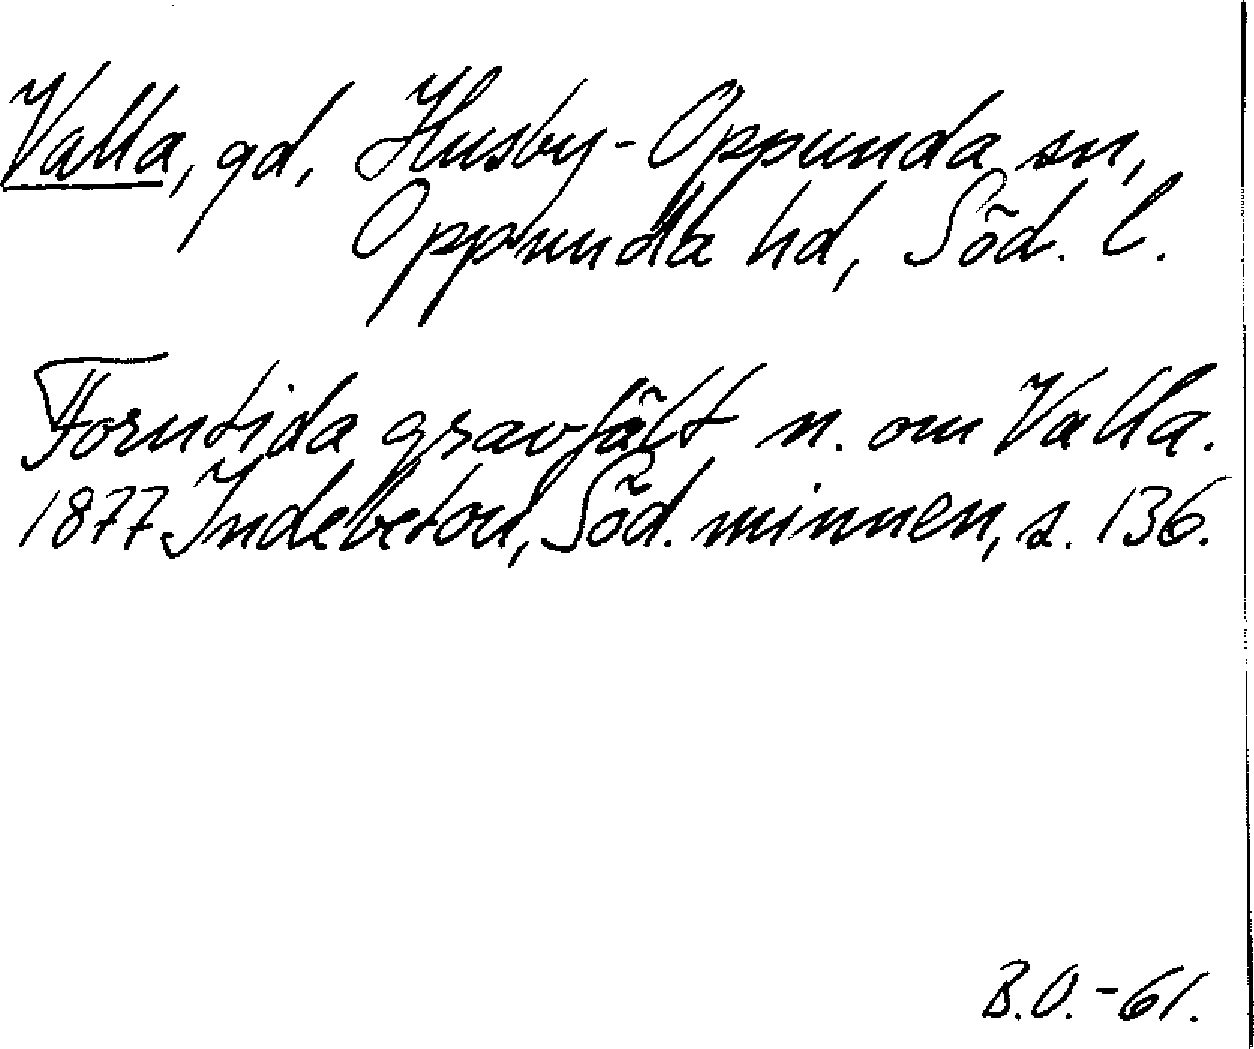 Valla, gd, Husby-Oppunda sn,
Oppunda hd, Söd. l.
Forntida gravfält n. om Valla.
1877 Indebetou, Söd. minnen, s. 136.
B.O. -61.